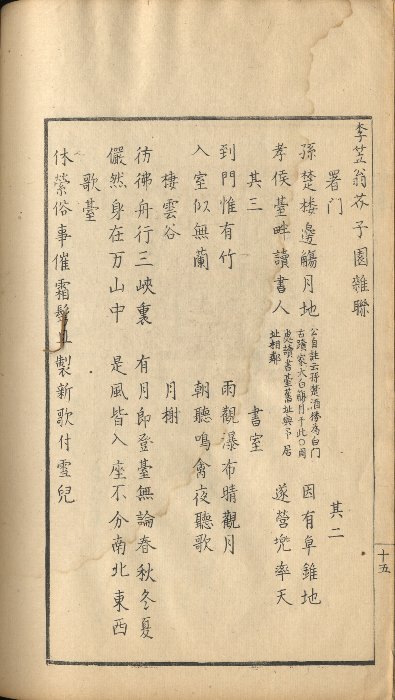 李笠翁芥子園雜聯
署门　其二
孫楚楼邊觴月地　因有卓錐地
孝侯臺畔讀書人　遂营兜率天
公自註云孫楚酒楼為白门
古蹟家太白觴月于此〇周
處讀書臺舊址與予居
址相鄰
其三　書室
到門惟有竹　雨觀瀑布晴觀月
入室似無蘭　朝聽鳴禽夜聽歌
棲雲谷　月榭
彷彿舟行三峡裏　有月即登臺無論春秋冬夏
儼然身在万山中　是風皆入座不分南北東西
歌臺
休縈俗事催霜鬂且製新歌付雪兒
十五